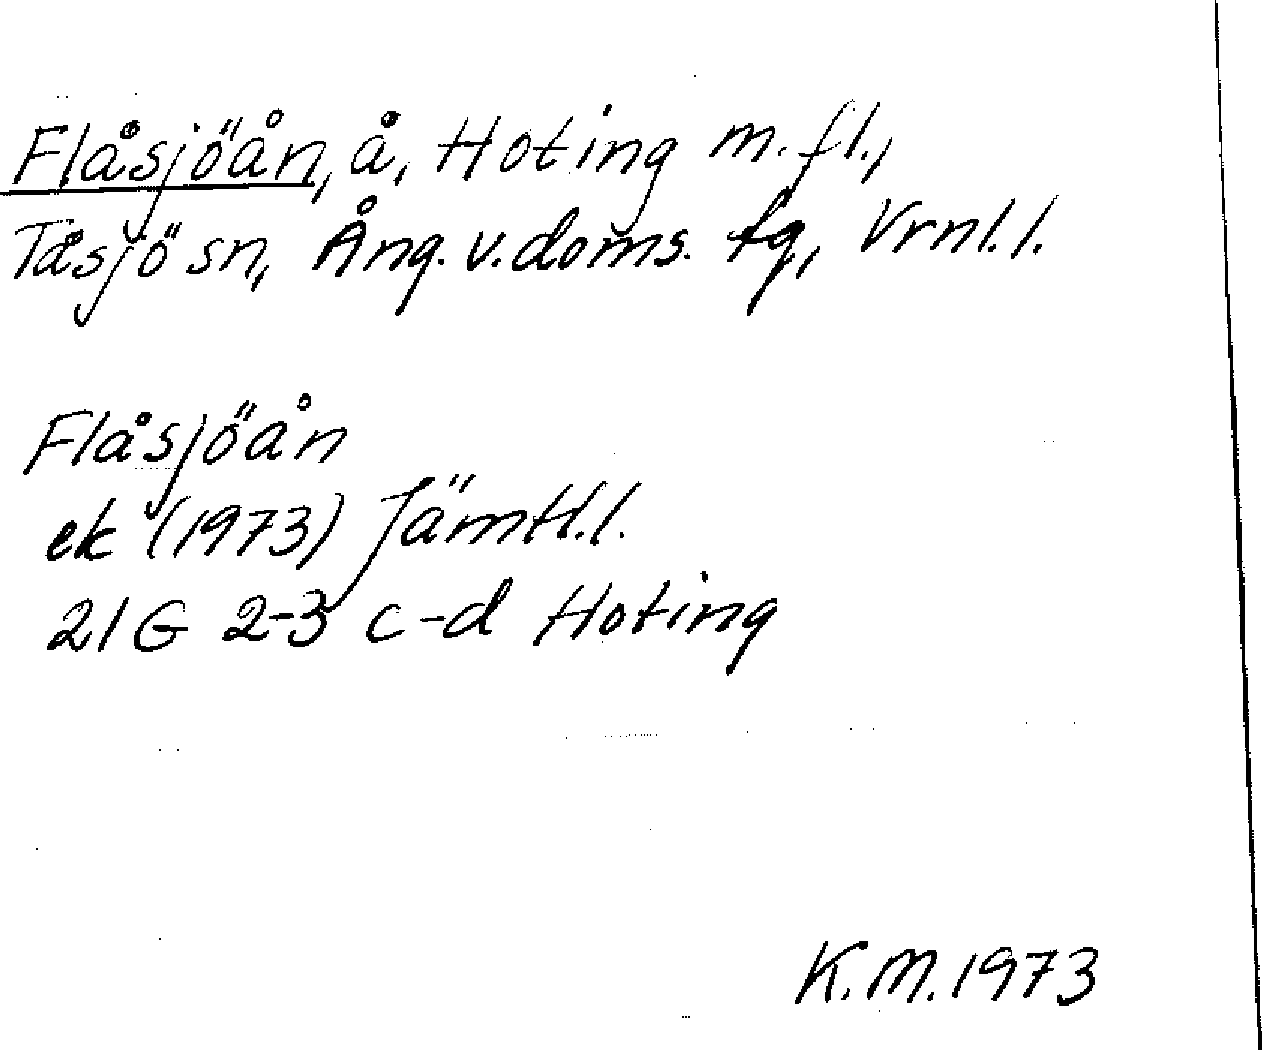 Flåsjöån, å, Hoting m.fl.,
Tåsjö sn, Ång. v. doms. fg, Vrnl. l.
Flåsjöån
ek (1973) Jämtl.l.
21G 2-3 c-d Hoting
K.M. 1973